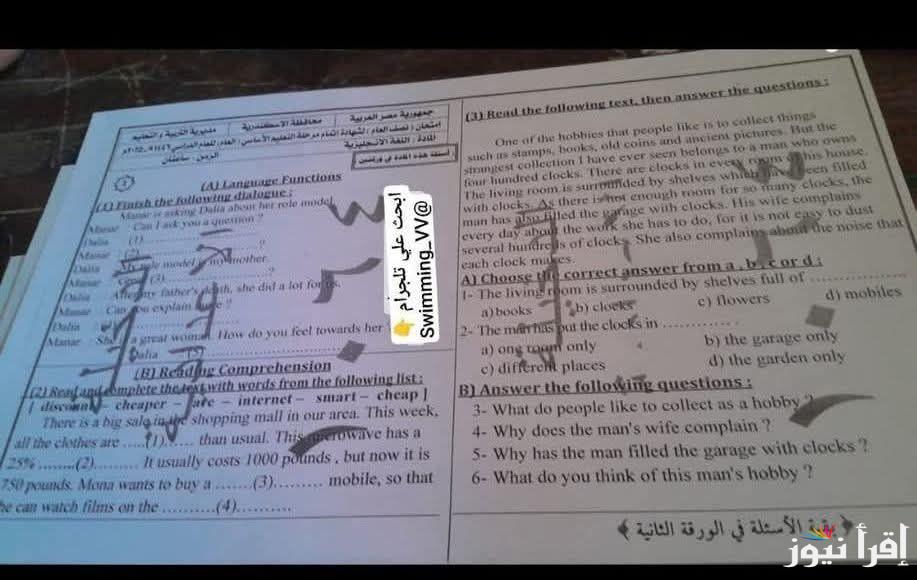 جمهورية مصر العربية محافظة الاسكندرية مديرية التربية و التعليم
امتحان : نصف العام : لشهادة إتمام مرحلة التعليم الأساسي : العام : للعام الدراسي
المادة : اللغة الانجليزية
الزمن : ساعتان
أسئلة هذه المادة في ورقتين
(A) Language Functions
(1) Finish the following dialogue :
Manar is asking Dalia about her role model.
Manar : Can I ask you a question ?
Dalia : (1)
Manar : (2) ?
Dalia : My role model is my mother.
Manar : (3) ?
Dalia : After my father's death, she did a lot for us.
Manar : Can you explain more ?
Dalia : (4)
Manar : She is a great woman. How do you feel towards her
Dalia : (5)
(B) Reading Comprehension
(2) Read and complete the text with words from the following list :
[ discount – cheaper – are – internet – smart – cheap ]
There is a big sale in the shopping mall in our area. This week,
all the clothes are .....(1)...... than usual. This microwave has a
25% ........(2)......... It usually costs 1000 pounds , but now it is
750 pounds. Mona wants to buy a .......(3)......... mobile, so that
he can watch films on the ..........(4)..........
ابحث علي تلجرام 👉
Swimming_VV@
(3) Read the following text, then answer the questions :
One of the hobbies that people like is to collect things
such as stamps, books, old coins and ancient pictures. But the
strangest collection I have ever seen belongs to a man who owns
four hundred clocks. There are clocks in every room of his house.
The living room is surrounded by shelves which have been filled
with clocks. As there is not enough room for so many clocks, the
man has also filled the garage with clocks. His wife complains
every day about the work she has to do, for it is not easy to dust
several hundreds of clocks. She also complains about the noise that
each clock makes.
A) Choose the correct answer from a , b , c or d :
1- The living room is surrounded by shelves full of ...............
a) books b) clocks c) flowers d) mobiles
2- The man has put the clocks in ............
a) one room only b) the garage only
c) different places d) the garden only
B) Answer the following questions :
3- What do people like to collect as a hobby ?
4- Why does the man's wife complain ?
5- Why has the man filled the garage with clocks ?
6- What do you think of this man's hobby ?
﴿ بقية الأسئلة في الورقة الثانية ﴾
إقرأ نيوز